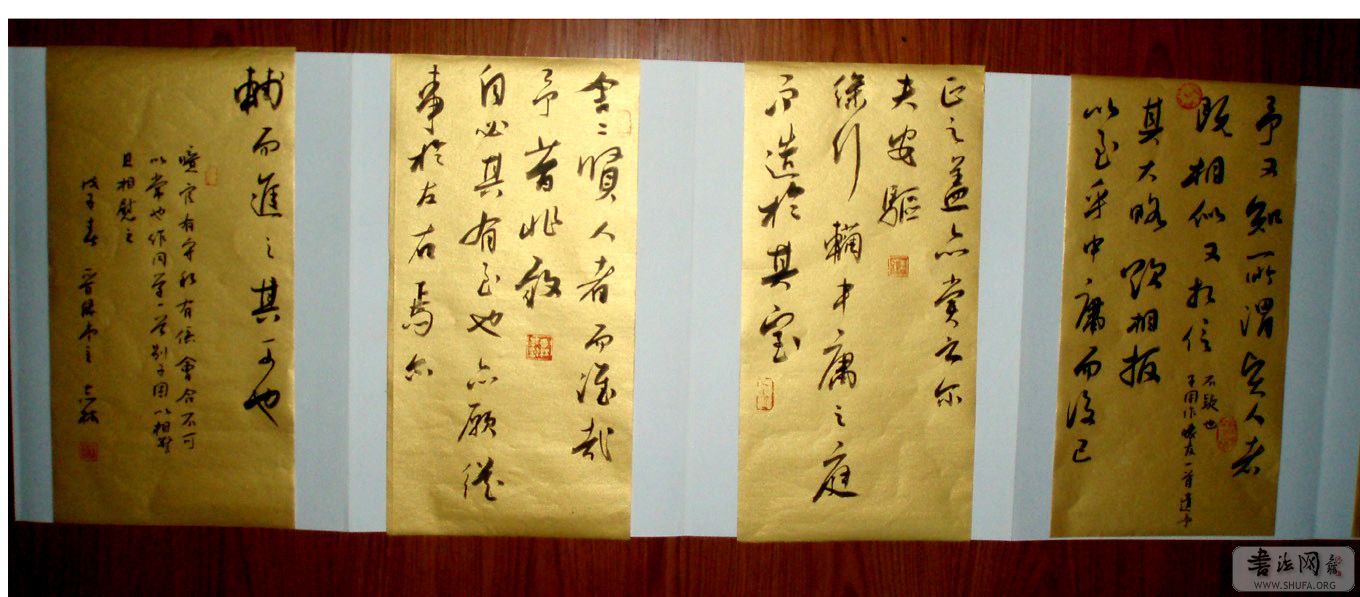 予又知所謂賢人者
既相似又相信
不疑也
子固作懷友一首遺予
其大略欲相扳
以至乎中庸而後已
正之蓋亦常云尔
夫安驅
徐行輔中庸之庭
而造於其室
舍二賢人者而誰哉
予昔非敢
自必其有至也亦願從
事於左右焉尔
輔而進之其可也
噫官有守私有係會合不可
以常也作同学一首别子固以相警
且相慰之
戊子春
书法网
WWW.SHUFA.ORG